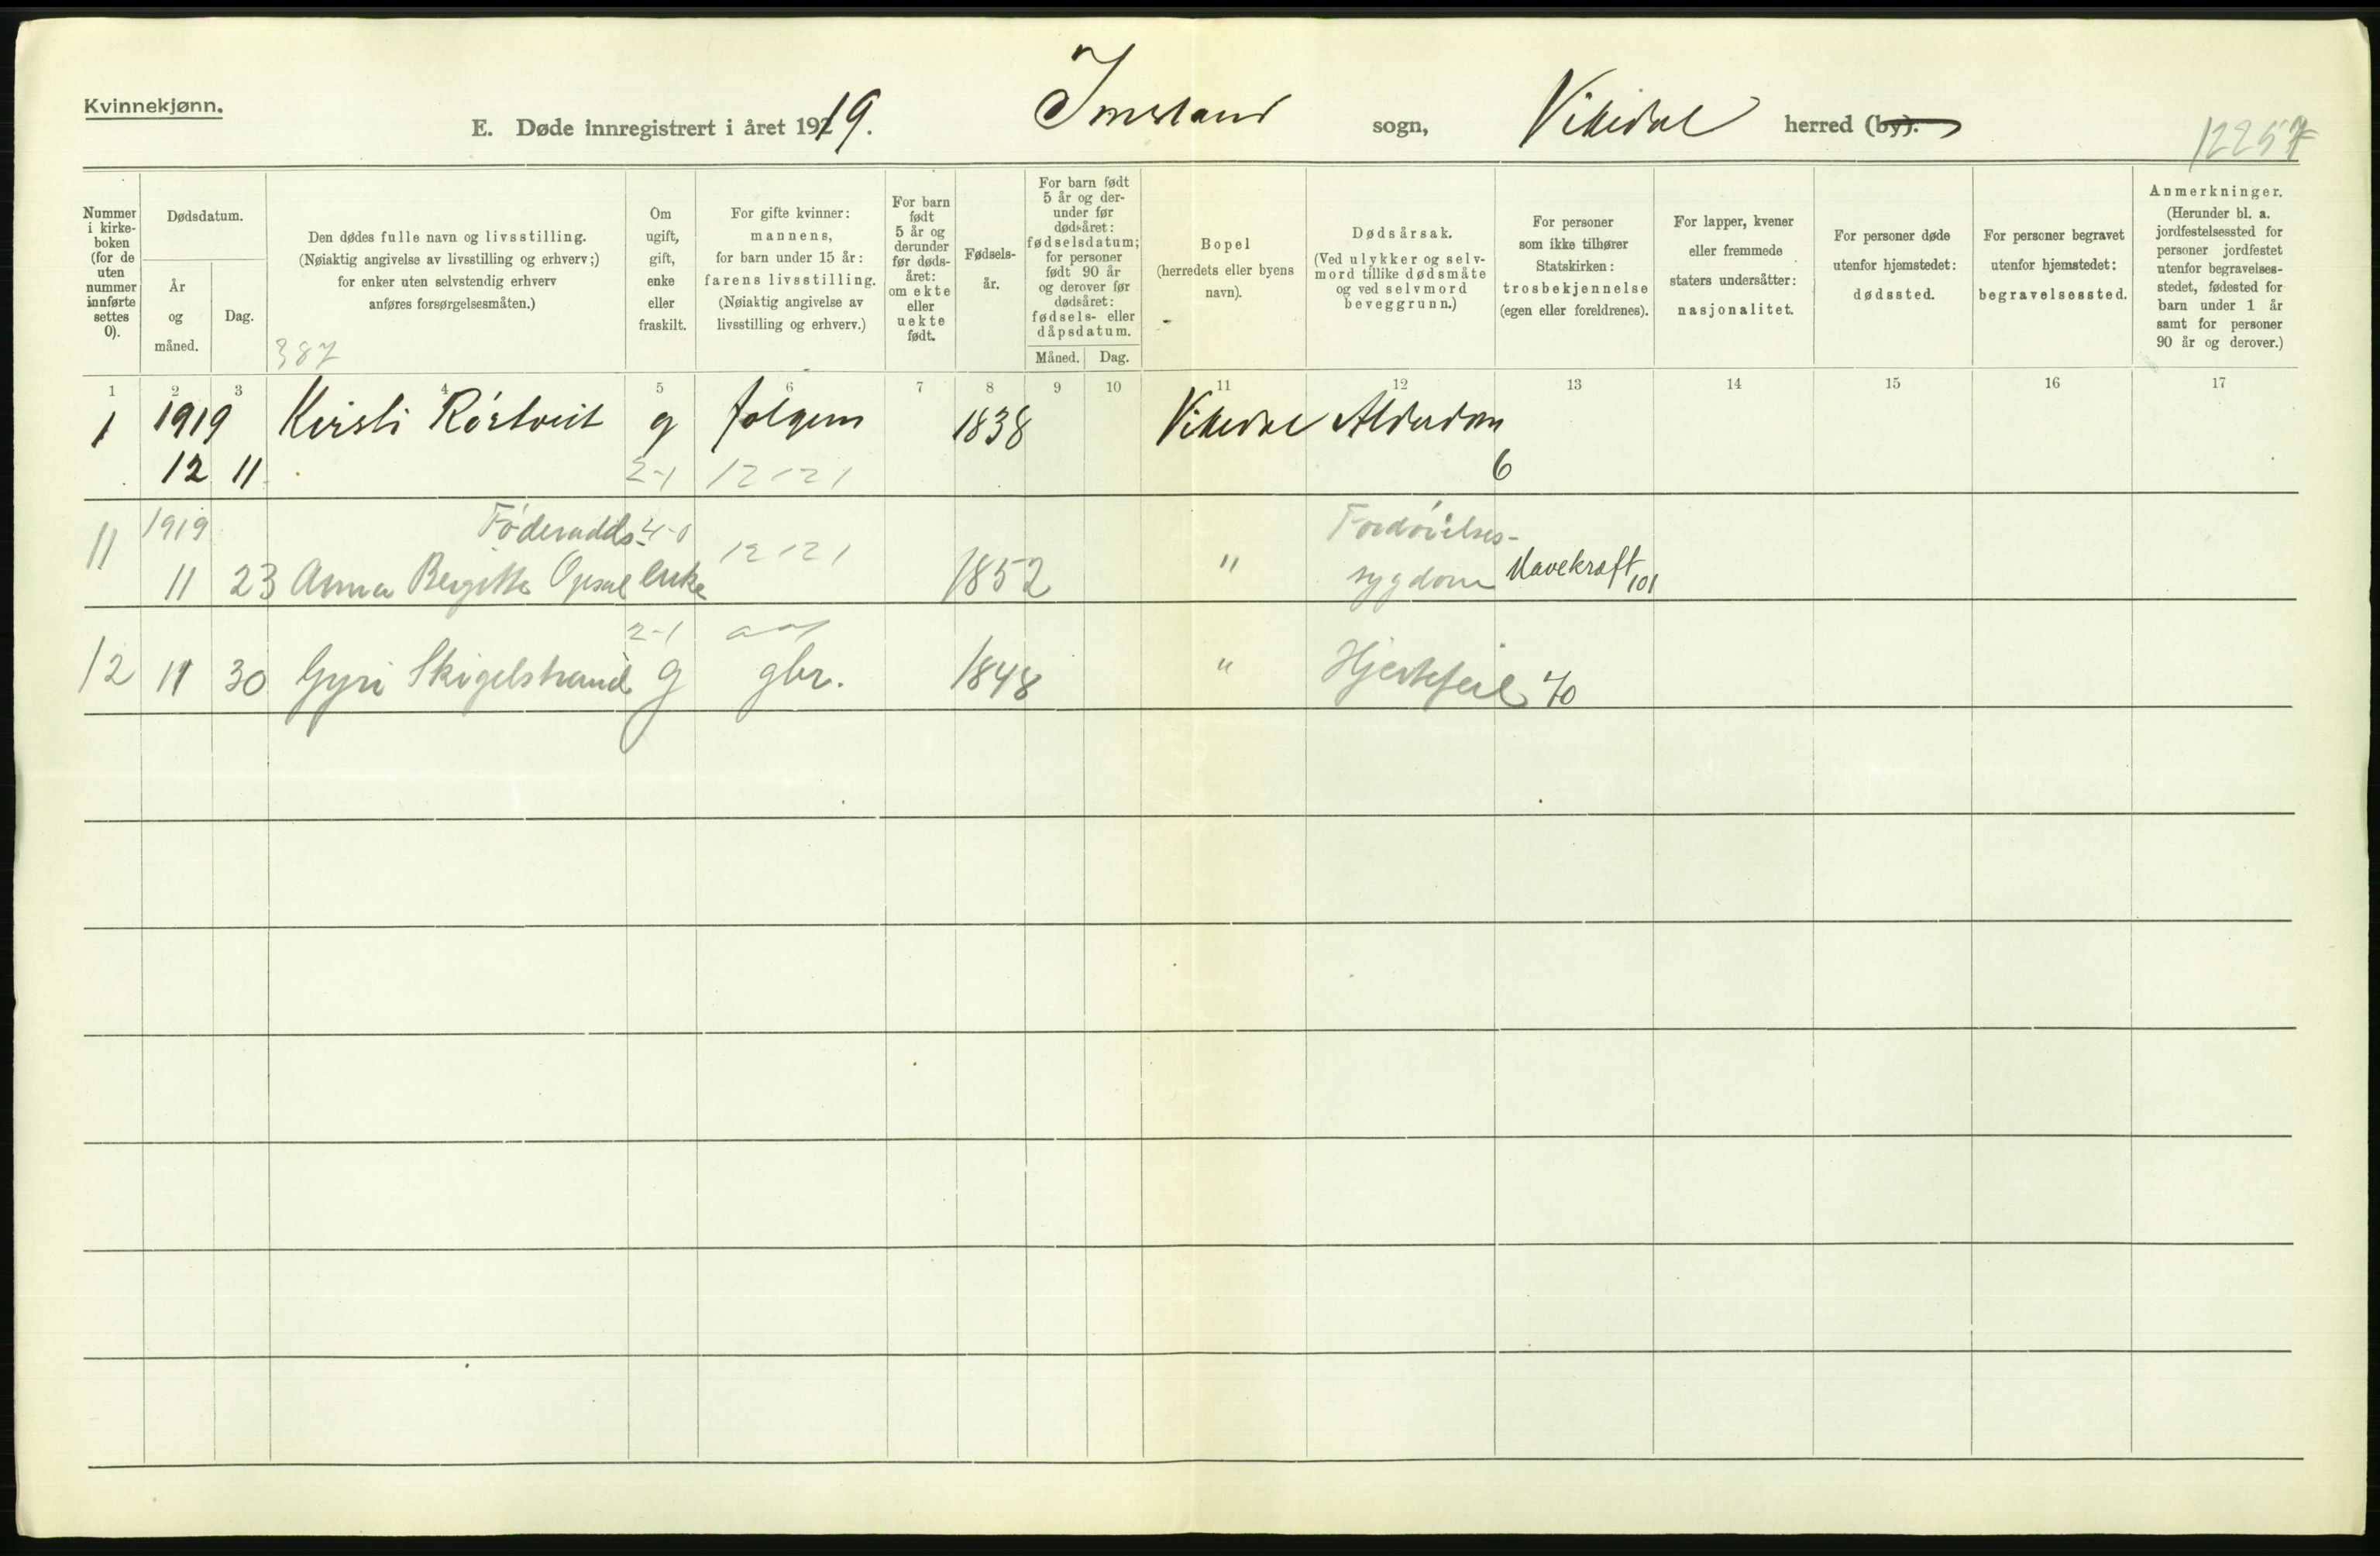 Kvinnekjønn.
E. Døde innregistrert i året 1919. Imsland sogn, Vikedal herred (by).
12257
Nummer i kirke- boken (for de uten nummer innførte settes 0).
Dødsdatum.
År og måned.
Dag.
Den dødes fulle navn og livsstilling.
(Nøiaktig angivelse av livsstilling og erhverv;)
for enker uten selvstendig erhverv
anføres forsørgelsesmåten.)
387
Om ugift, gift, enke eller fraskilt.
For gifte kvinner:
mannens,
for barn under 15 år:
farens livsstilling.
(Nøiaktig angivelse av
livsstilling og erhverv.)
For barn født 5 år og derunder før døds- året: om ekte eller uekte født.
Fødsels- år.
For barn født 5 år og der- under før dødsåret: fødselsdatum; for personer født 90 år og derover før dødsåret: fødsels- eller dåpsdatum.
Måned. Dag.
Bopel
(herredets eller byens
navn).
Dødsårsak.
(Ved ulykker og selv-
mord tillike dødsmåte
og ved selvmord
beveggrunn.)
For personer
som ikke tilhører
Statskirken:
trosbekjennelse
(egen eller foreldrenes).
For lapper, kvener
eller fremmede
staters undersåtter:
nasjonalitet.
For personer døde
utenfor hjemstedet:
dødssted.
For personer begravet
utenfor hjemstedet:
begravelsessted.
Anmerkninger.
(Herunder bl. a.
jordfestelsessted for
personer jordfestet
utenfor begravelses-
stedet, fødested for
barn under 1 år
samt for personer
90 år og derover.)
1 2 3 4 5 6 7 8 9 10 11 12 13 14 15 16 17
1 1919 Kirsti Rørtveit g folgem 1838 Vikedal Alderdom
12 11 2-1 12121 6
11 1919 Föderadds- 4-0 12121 Fordöielses-
11 23 Anna Bergitte Opsal enke 1852 " sygdom Mavekræft 101
2-1
12 11 30 Gyri Skigelstrand g gbr. 1848 " Hjertefeil 70